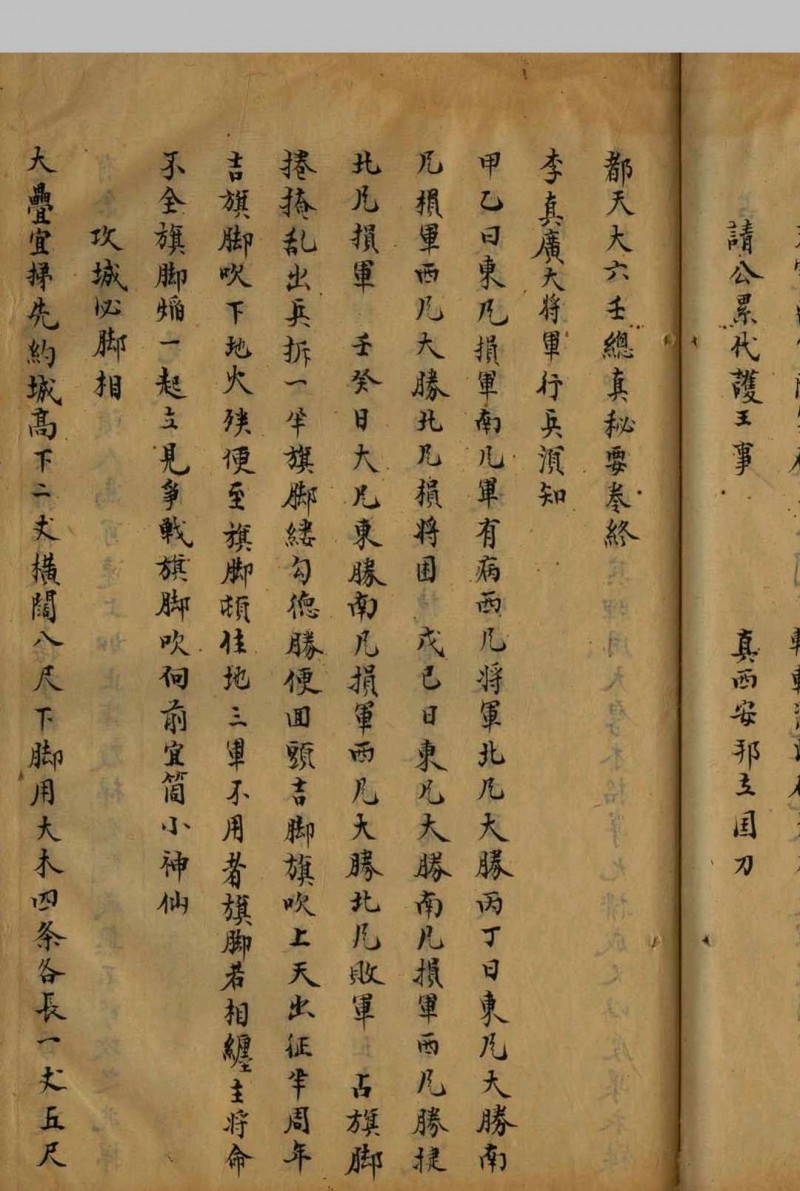 請公累代護王事　真西安邦立国刀
都天大六壬總真秘要卷終
李真廣大将軍行兵須知
甲乙日東凡損軍南凡軍有病西凡将軍北凡大勝丙丁日東凡大勝南
凡損軍西凡大勝北凡損将困　戊己日東凡大勝南凡損軍西凡勝捷
北凡損軍　壬癸日大凡東勝南凡損軍西凡大勝北凡敗軍　占旗脚
捲掩乱出兵拆一半旗脚縷勾德勝便回頭吉脚旗吹上天出征半周年
吉旗脚吹下地火殃便至旗脚頓住地三軍不用者旗脚若相纏主将命
不全旗脚焰一起立見爭戰旗脚吹向前宜筒小神仙
攻城必脚相
大疊宜捇先約城高下二丈橫闊八尺下脚用大木四条各長一丈五尺